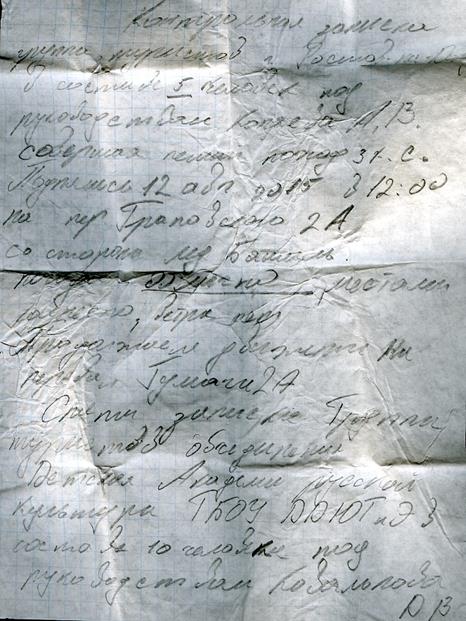 Контрольная записка
группа туристов г. Ростов-на-
в составе 5 человек под
руководством М. В.
совершая пеший поход 3 к. с.
Поднялись 12 авг 2015 в 12:00
на пер Грановского 2А
со стороны лед
Погода местами
ветра нет
Продолжаем движение на
перевал Тумачи 2А
Сняли записку группы
туристов объединения
Детская Академии русской
культуры ГКОУ ДДЮТиЭ в
составе 10 человек под
руководством Ковалькова
Д. В.